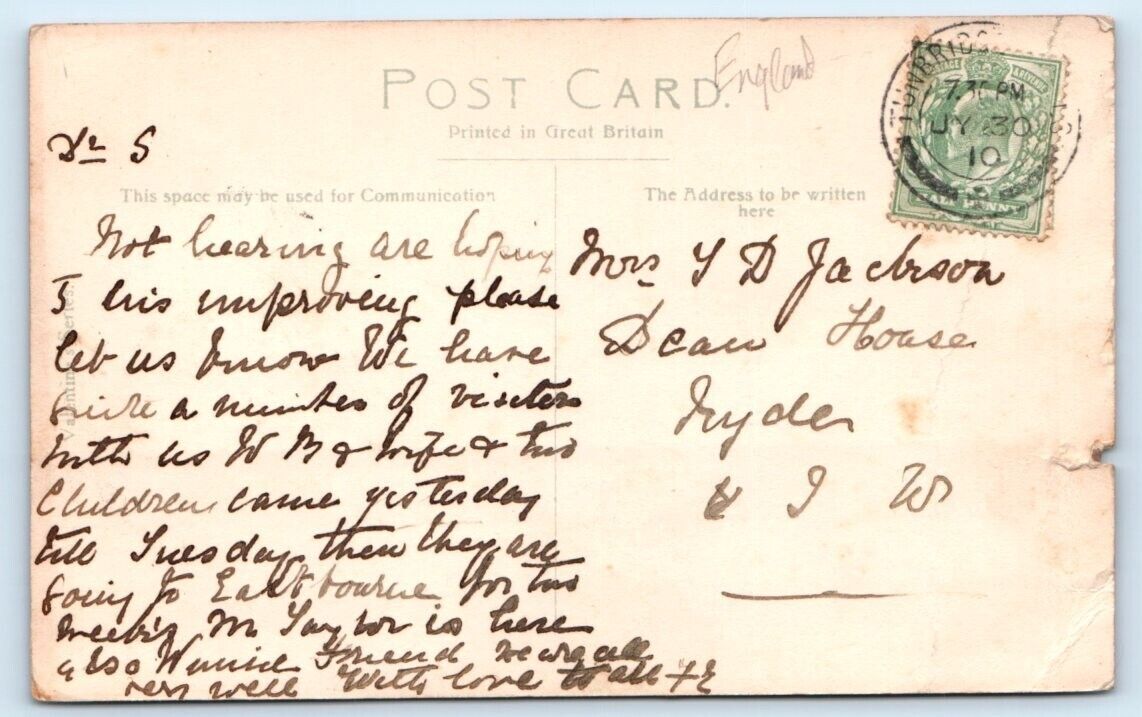 POST CARD.
England
Printed in Great Britain
TUNBRIDGE
7.30 PM
JY 30
10
HALF PENNY
Dr S
This space may be used for Communication
The Address to be written
here
Not hearing are hoping
T is improving please
let us know We have
quite a number of visitors
with us W B & wife & two
Children came yesterday
till Tuesday then they are
going to Eastbourne for two
weeks Mr Taylor is here
also Winnie Friend we are all
very well With love to all
Mrs S D Jackson
Dean House
Ryde
I W
Valentine's Series.